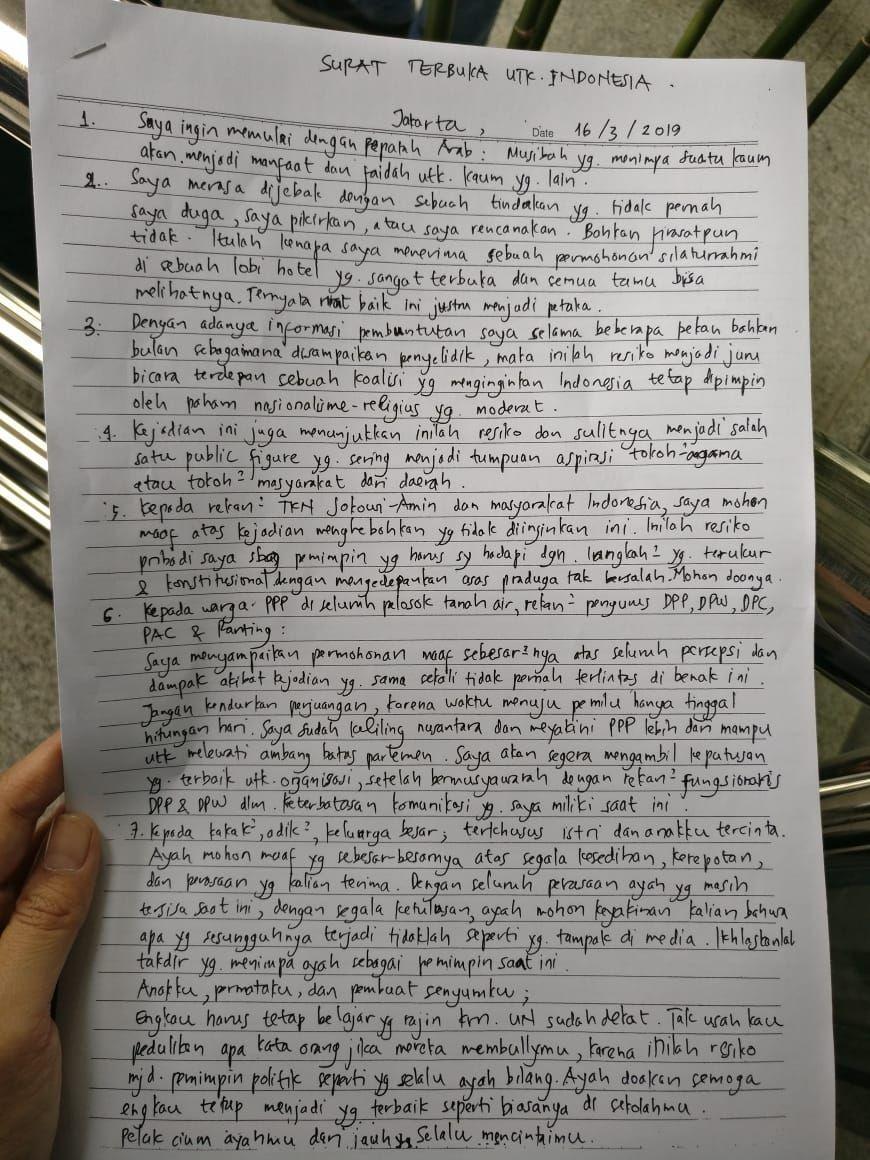 SURAT TERBUKA UTK. INDONESIA.
Jakarta, Date 16/3/2019
1. Saya ingin memulai dengan pepatah Arab: Musibah yg. menimpa suatu kaum
akan menjadi manfaat dan faidah utk. kaum yg. lain.
2. Saya merasa dijebak dengan sebuah tindakan yg. tidak pernah
saya duga, saya pikirkan, atau saya rencanakan. Bahkan firasatpun
tidak. Itulah kenapa saya menerima sebuah permohonan silaturrahmi
di sebuah lobi hotel yg. sangat terbuka dan semua tamu bisa
melihatnya. Ternyata niat baik ini justru menjadi petaka.
3. Dengan adanya informasi pembuntutan saya selama beberapa pekan bahkan
bulan sebagamana disampaikan penyelidik, maka inilah resiko menjadi juru
bicara terdepan sebuah koalisi yg menginginkan Indonesia tetap dipimpin
oleh paham nasionalisme-religius yg. moderat.
4. Kejadian ini juga menunjukkan inilah resiko dan sulitnya menjadi salah
satu public figure yg. sering menjadi tumpuan aspirasi tokoh²agama
atau tokoh² masyarakat dari daerah.
5. Kepada rekan² TKN Jokowi-Amin dan masyarakat Indonesia, saya mohon
maaf atas kejadian menghebohkan yg tidak diinginkan ini. Inilah resiko
pribadi saya sbag pemimpin yg harus sy hadapi dgn. langkah² yg. terukur
& konstitusional dengan mengedepankan asas praduga tak bersalah. Mohon doanya.
6. Kepada warga PPP di seluruh pelosok tanah air, rekan² pengurus DPP, DPW, DPC,
PAC & Ranting:
Saya menyampaikan permohonan maaf sebesar²nya atas seluruh persepsi dan
dampak akibat kejadian yg. sama sekali tidak pernah terlintas di benak ini.
Jangan kendurkan perjuangan, karena waktu menuju pemilu hanya tinggal
hitungan hari. Saya sudah keliling nusantara dan meyakini PPP lebih dari mampu
utk melewati ambang batas parlemen. Saya akan segera mengambil keputusan
yg. terbaik utk. organisasi, setelah bermusyawarah dengan rekan² fungsionaris
DPP & DPW dlm. keterbatasan komunikasi yg. saya miliki saat ini.
7. Kepada kakak², adik², keluarga besar; terkhusus istri dan anakku tercinta.
Ayah mohon maaf yg sebesar-besarnya atas segala kesedihan, kerepotan,
dan perasaan yg kalian terima. Dengan seluruh perasaan ayah yg masih
tersisa saat ini, dengan segala ketulusan, ayah mohon keyakinan kalian bahwa
apa yg sesungguhnya terjadi tidaklah seperti yg. tampak di media. Ikhlaskanlah
takdir yg. menimpa ayah sebagai pemimpin saat ini.
Anakku, permataku, dan pembuat senyumku;
Engkau harus tetap belajar yg rajin krn. UN sudah dekat. Tak usah kau
pedulikan apa kata orang jika mereka membullymu, karena inilah resiko
mjd. pemimpin politik seperti yg selalu ayah bilang. Ayah doakan semoga
engkau tetap menjadi yg terbaik seperti biasanya di sekolahmu.
Peluk cium ayahmu dari jauh yg selalu mencintaimu.